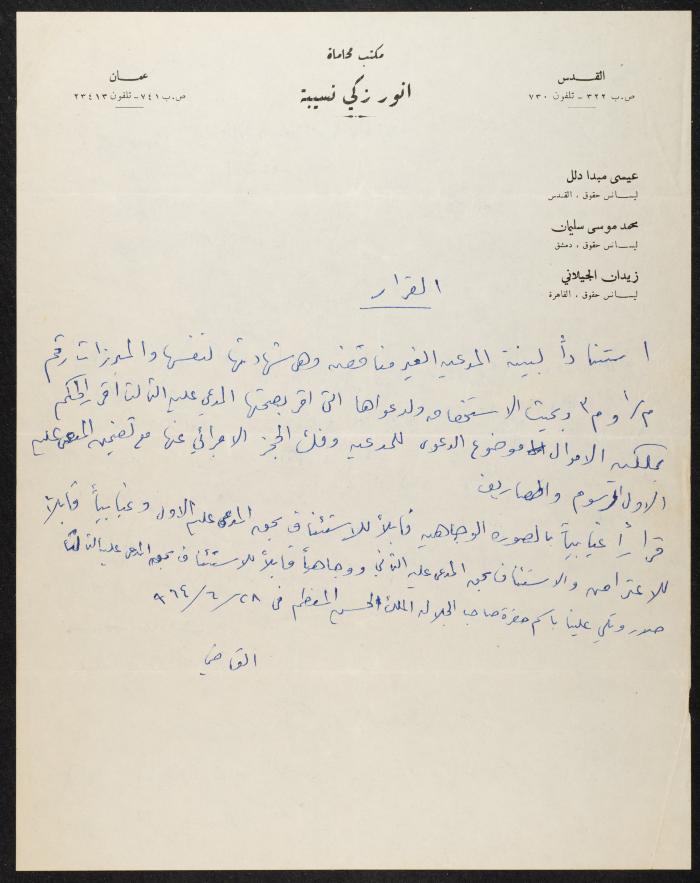 مكتب محاماة
انور زكي نسيبة
القدس
ص.ب ٣٢٢ - تلفون ٧٣٠
عمان
ص.ب ٧٤١ - تلفون ٢٣٤١٣
عيسى مبدا دلل
ليسانس حقوق ، القدس
محمد موسى سليمان
ليسانس حقوق ، دمشق
زيدان الجيلاني
ليسانس حقوق ، القاهرة
القرار
استناداً لبينة المدعيه الغير مناقضه وهي شهادتها لنفسها والمبرزات رقم
م/١ و م/٣ وبحيث الاستحقاقه ولدعواها التي اقر بصحتها المدعي عليه الثالث اقرر الحكم
بملكيه الاموال موضوع الدعوى للمدعيه وفك الحجز الاجرائي عنها مع تضمين المدعى عليه
الاول الرسوم والمصاريف
قراراً غيابياً بالصوره الوجاهيه قابلاً للاستئناف بحق المدعى عليه الاول وغيابياً قابلاً
للاعتراض والاستئناف بحق المدعى عليه الثاني ووجاهياً قابلاً للاستئناف بحق المدعى عليه الثالث
صدر وتلي علينا باسم حضرة صاحب الجلاله الملك الحسين المعظم في ٢٨/٦/٩٦٤
القاضي